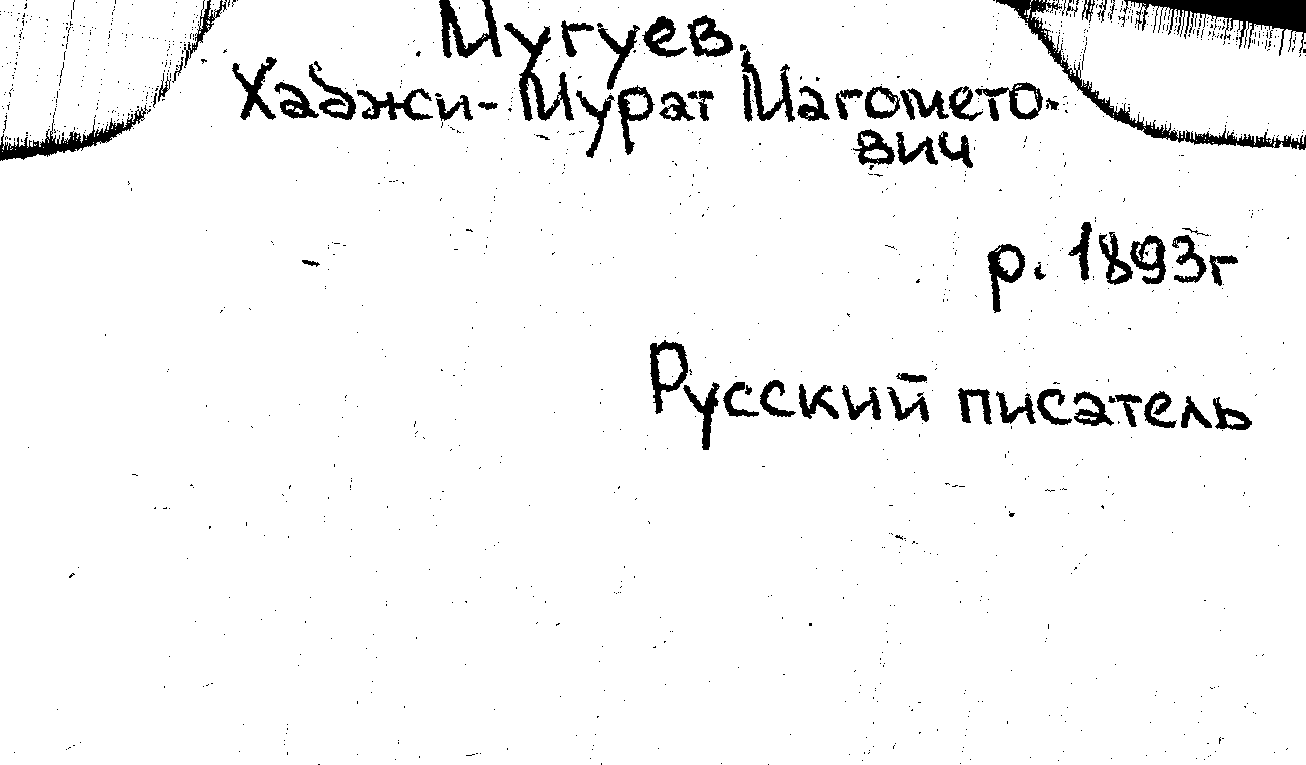 Мугуев,
Хаджи-Мурат Магомето-
вич
р. 1893г
Русский писатель